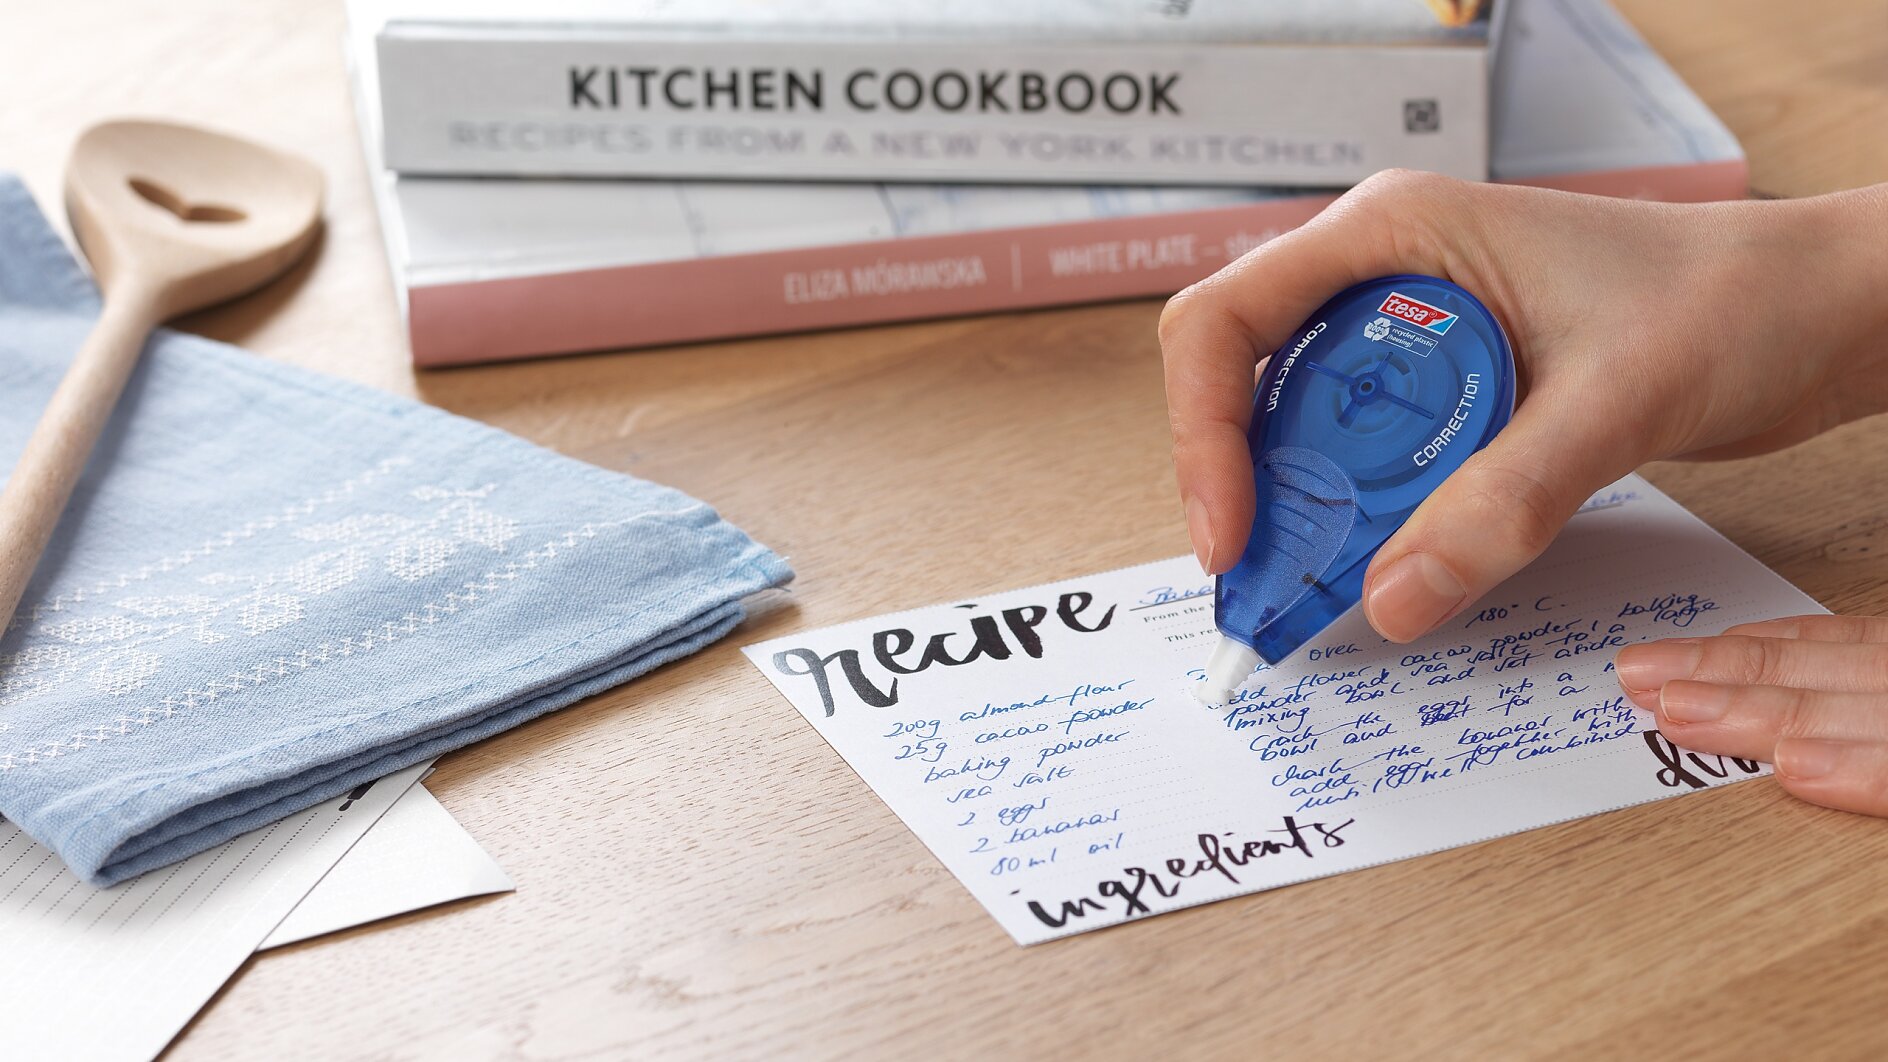 KITCHEN COOKBOOK
RECIPES FROM A NEW YORK KITCHEN
ELIZA MÓRAWSKA | WHITE PLATE –
tesa®
100% recycled plastic
(housing)
CORRECTION
CORRECTION
recipe
From the
This re
200g almond flour
25g cacao powder
baking powder
sea salt
2 eggs
2 bananas
80ml oil
oven 180° C.
add flower, cacao powder, baking
powder and sea salt to a large
mixing bowl and set aside.
Crack the eggs into a
bowl and for a
the bananas with
add eggs together with
until well combined
ingredients